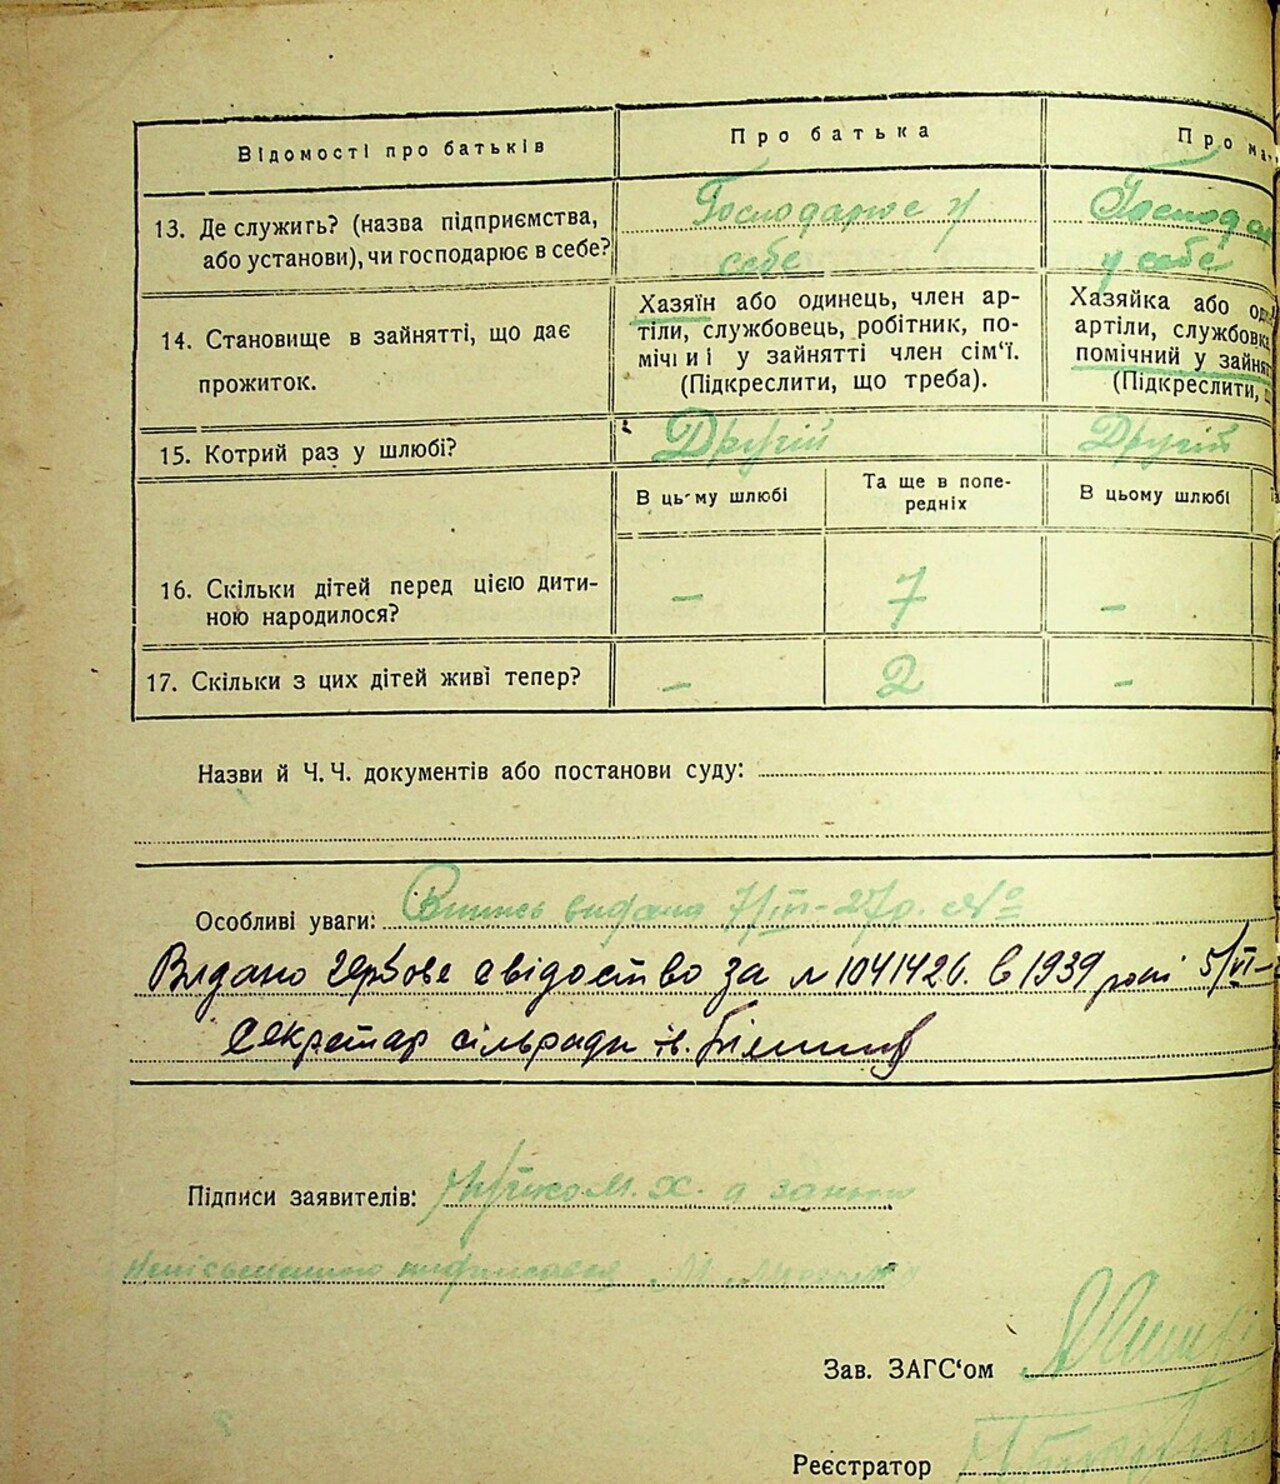 Відомості про батьків
Про батька
Про ма
13. Де служить? (назва підприємства,
або установи), чи господарює в себе?
Господарює у
себе
Господа
у себе
14. Становище в зайнятті, що дає
прожиток.
Хазяїн або одинець, член ар-
тіли, службовець, робітник, по-
мічний у зайнятті член сім‘ї.
(Підкреслити, що треба).
Хазяйка або од
артіли, службовка
помічний у зайня
(Підкреслити,
15. Котрий раз у шлюбі?
Другій
Другій
В цьому шлюбі
Та ще в попе-
редніх
В цьому шлюбі
16. Скільки дітей перед цією дити-
ною народилося?
–
7
–
17. Скільки з цих дітей живі тепер?
–
2
–
Назви й Ч. Ч. документів або постанови суду:
Особливі уваги: Випись видана 7/III-27р. №
Видано гербове свідоство за № 1041426. в 1939 році 5/VI-
Секретар сільради
Підписи заявителів: М. Х. а за
неписьменного підписався М.
Зав. ЗАГС‘ом
Реєстратор